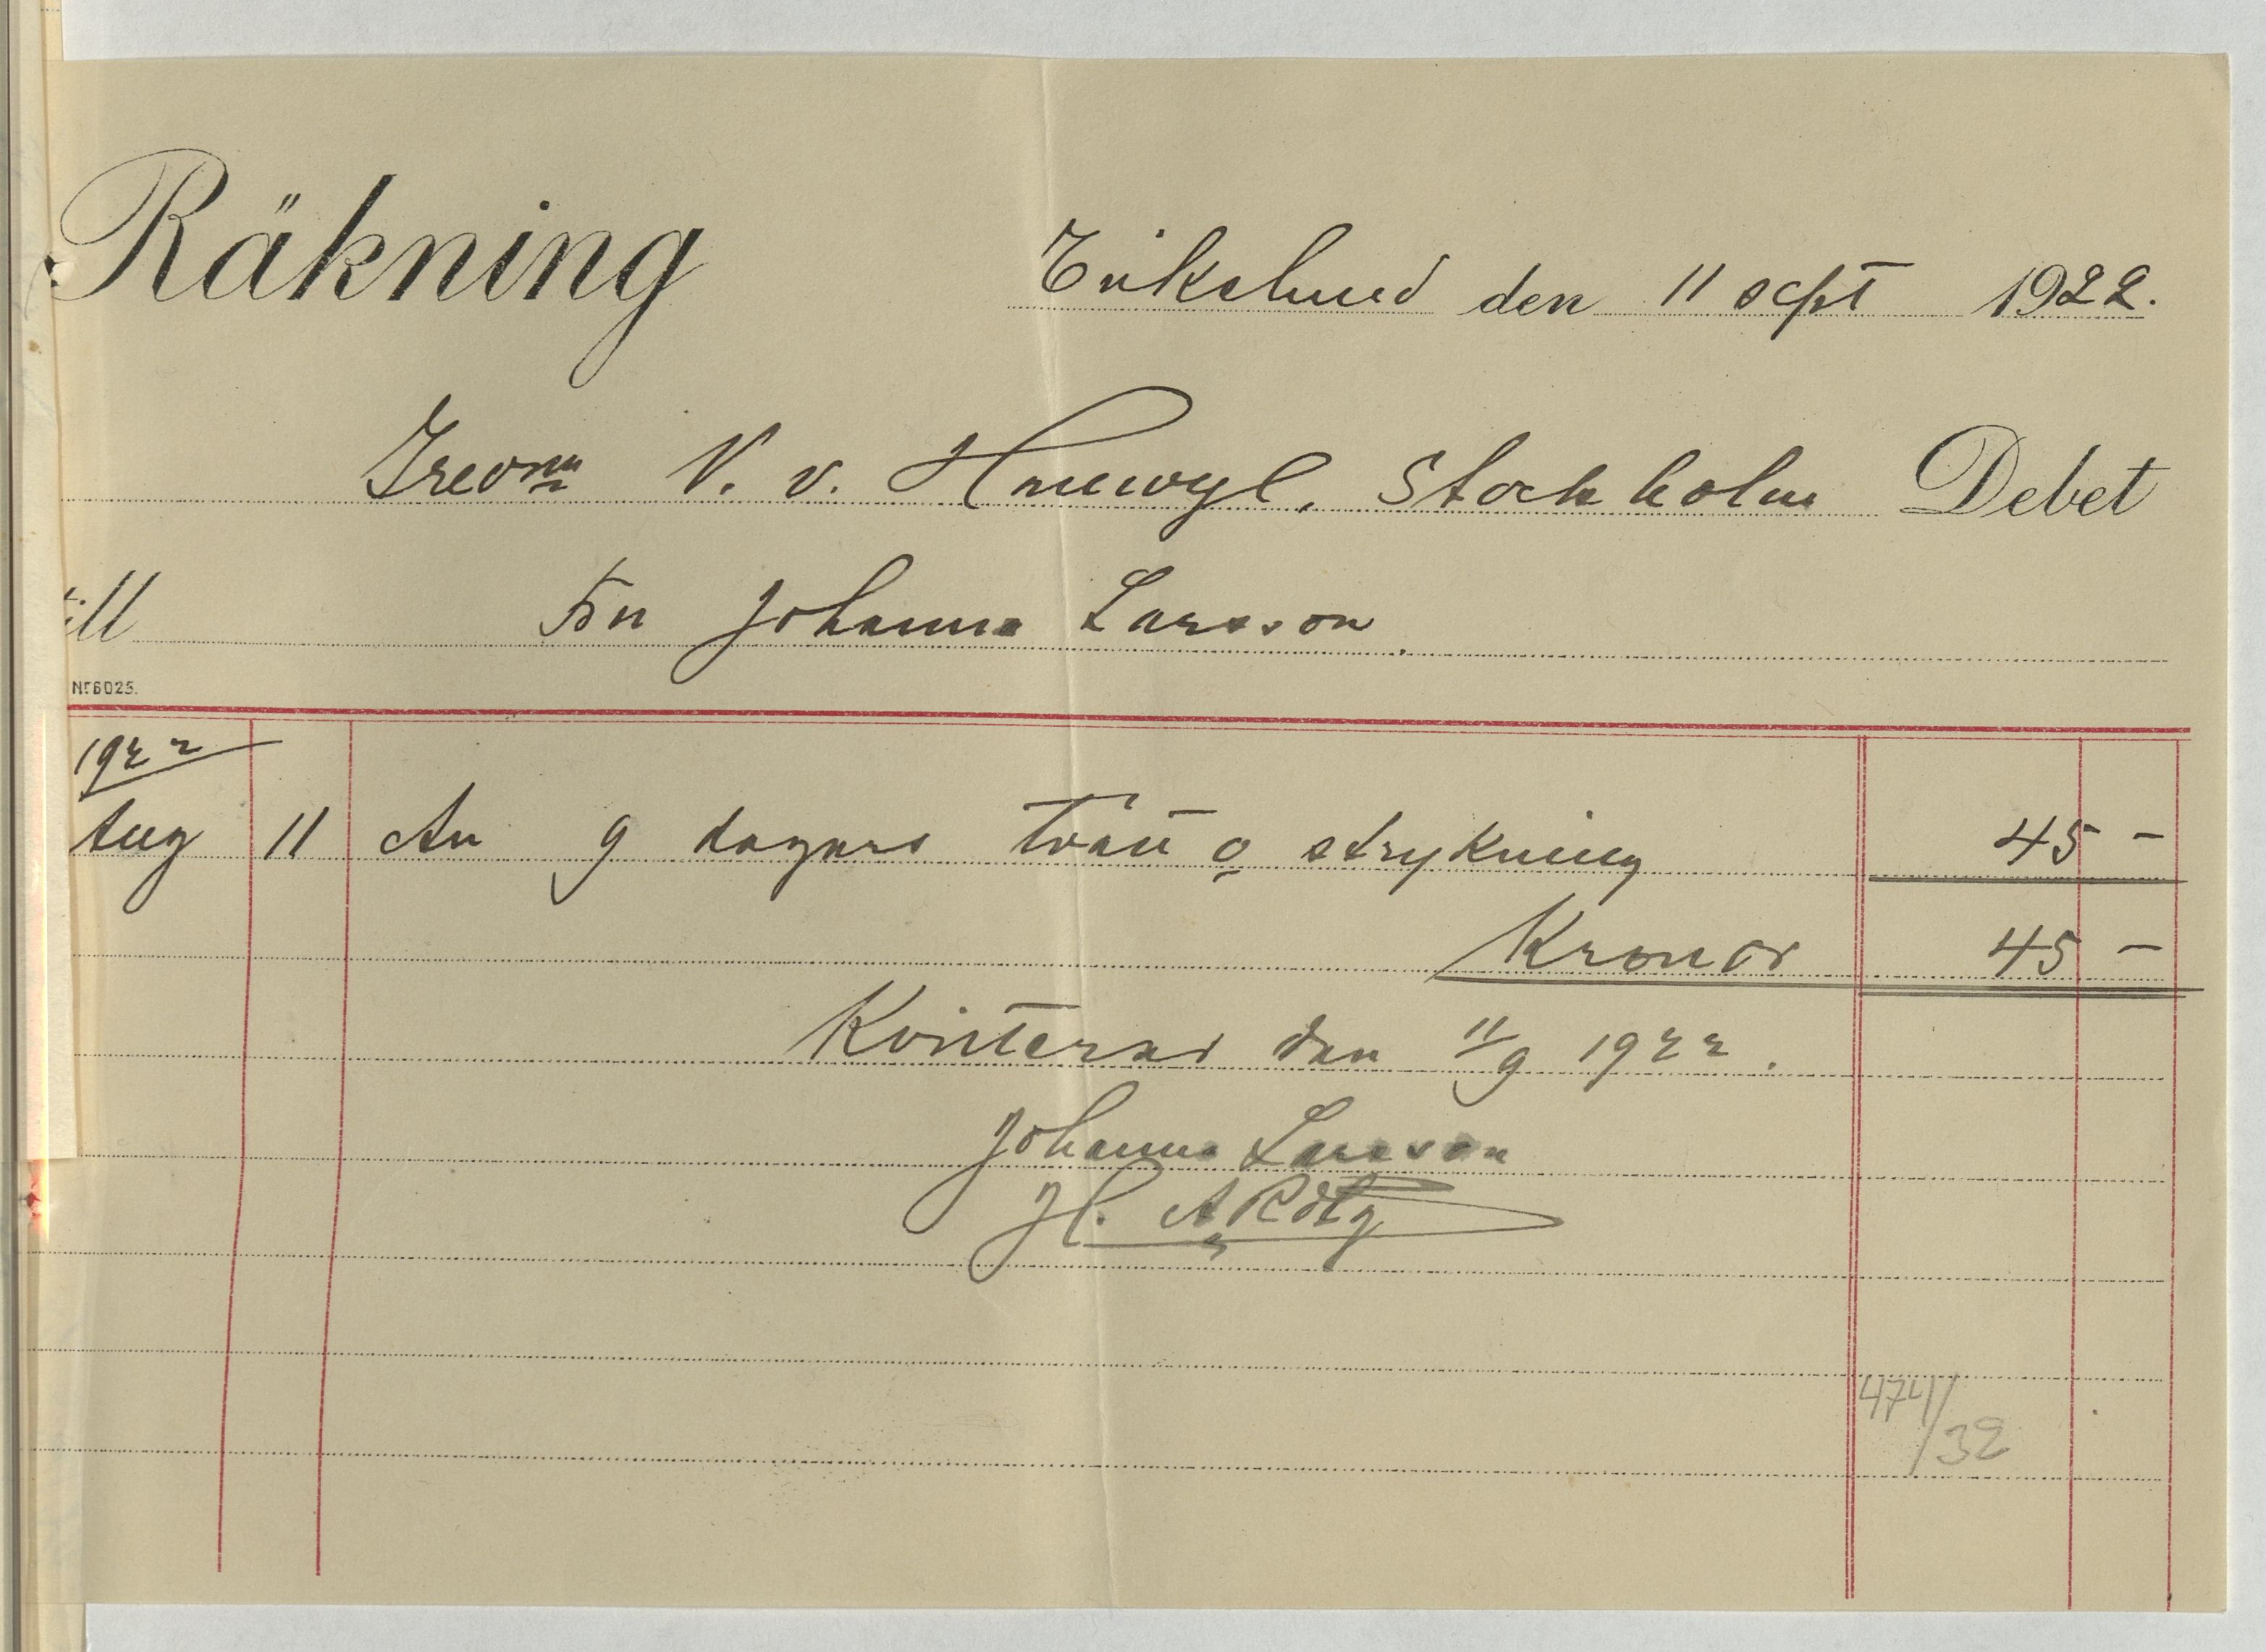 Räkning
Erikslund den 11 sept 1922.
Grevinn V. v. Hallwyl, Stockholm Debet
till Fru Johanna Larsson
Nr 6025.
1922
Aug 11 An 9 dagars tvätt o strykning 45 –
Kronor 45 –
Kvitteras den 11/9 1922.
Johanna Larsson
474/32